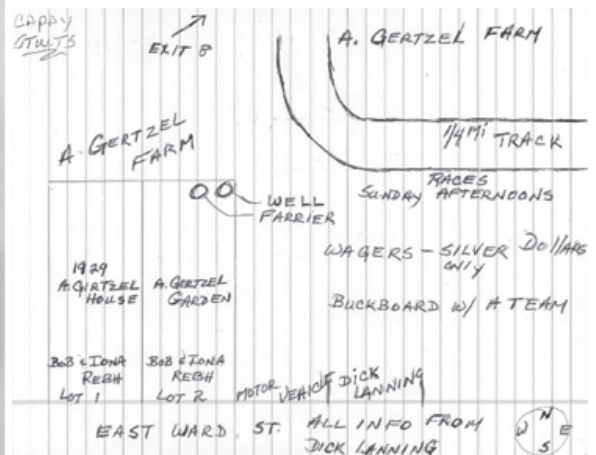 CAPPY
EXIT 8
A. GERTZEL FARM
A. GERTZEL
FARM
1/4 Mi TRACK
RACES
SUNDAY AFTERNOONS
WELL
FARRIER
WAGERS – SILVER DOLLARS
ONLY
BUCKBOARD W/ A TEAM
1929
A. GIRTZEL
HOUSE
A. GERTZEL
GARDEN
BOB & IONA
REBH
LOT 1
BOB & IONA
REBH
LOT 2
MOTOR VEHICLE
DICK
LANNING
EAST WARD ST.
ALL INFO FROM
DICK LANNING
N
W E
S